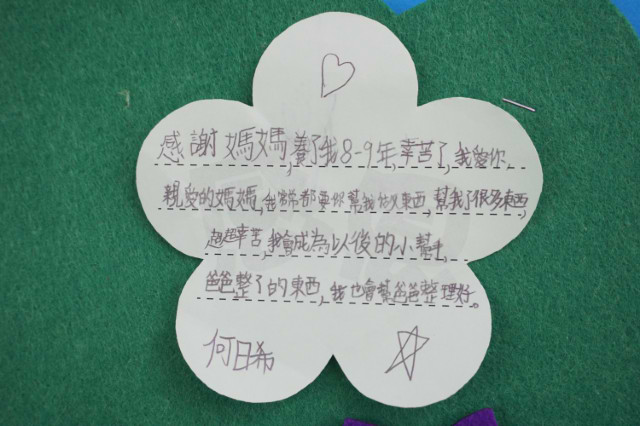 感謝媽媽,養了我8-9年,辛苦了,我愛你,
親愛的媽媽,我常常都要你幫我做東西,幫我了很多東西,
超辛苦,我會成為以後的小幫手,
爸爸整了的東西,我也會幫爸爸整理好。
何日希